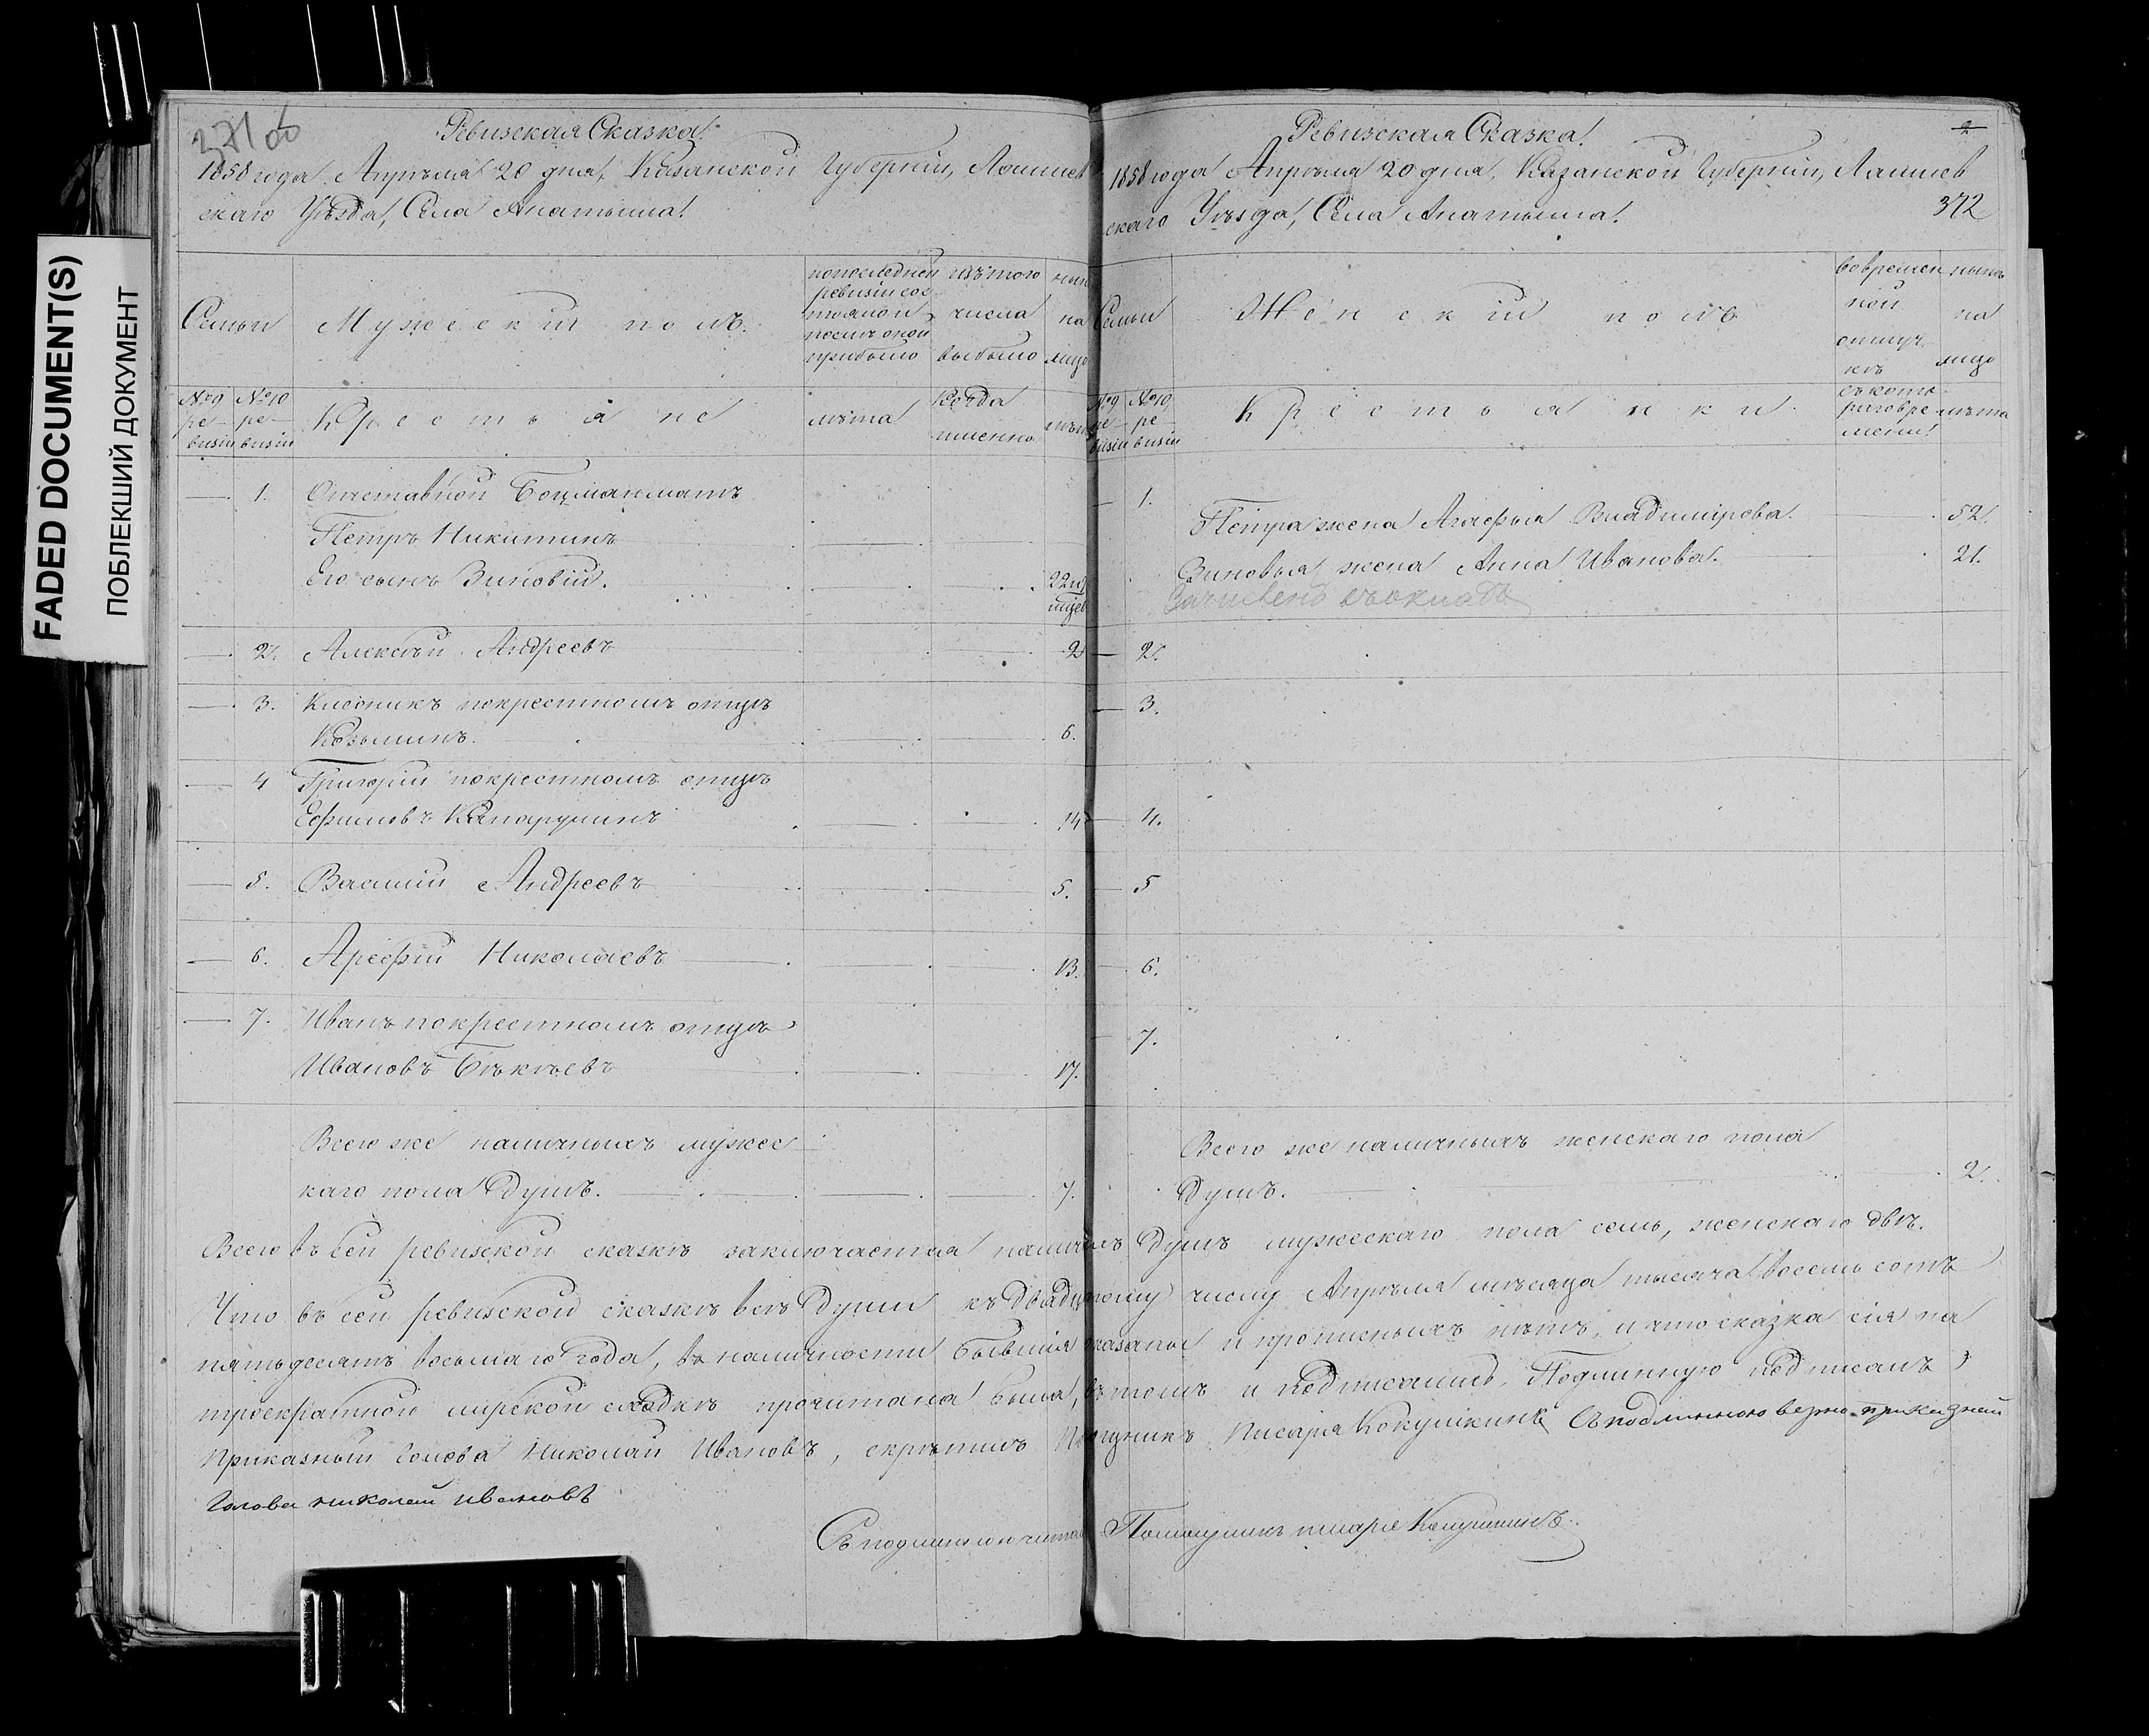 FADED DOCUMENT(S)
ПОБЛЕКШИЙ ДОКУМЕНТ
371 об
Ревизская Сказка
1858 года Апрѣля 20 дня, Казанской Губерніи, Лаишев
скаго Уѣзда, Села Анатыша
Семьи
Мужеский полъ.
по последней
ревизіи сос-
тояло и
после оной
прибыло
изъ того
числа
выбыло
ныне
на
лицо
№ 9
ре-
визіи
№ 10
ре-
визіи
Крестьяне
лѣта
Когда
именно
лѣта
1. Отставной Боцманматъ
Петръ Никитинъ
Его сынъ Зиновій. 22
2. Алексѣй Андреевъ 2
3. по крестномъ отцѣ
Козьминъ. 6.
4 Григорій по крестномъ отцѣ
Ефимовъ 14
5. Василій Андреевъ 5.
6. Арефій Николаевъ 13.
7. Иванъ по крестномъ отцѣ
Ивановъ Бѣкѣевъ 17.
Всего же наличныхъ мужес
каго пола душъ. 7.
Ревизская Сказка
2
1858 года Апрѣля 20 дня, Казанской Губерніи, Лаишев
скаго Уѣзда, Села Анатыша
372
Семьи
Женский полъ
во времен
ной
отлуч
кѣ
нынѣ
на
лицо
№ 9
ре-
визіи
№ 10
ре-
визіи
Крестьянки
съ кото-
раго вре
мени
лѣта
1.
Петра жена Агафья Владимірова. 52.
Зиновья жена Анна Иванова. 21.
Зачислено въ окладъ
2.
3.
4.
5
6.
7.
Всего же наличныхъ женскаго пола
душъ. 2.
Всего въ сей ревизской сказкѣ заключается наличныхъ душъ мужескаго пола семь, женскаго двѣ.
Что въ сей ревизской сказкѣ всѣ души къ двадцатому числу Апрѣля мѣсяца тысяча восемь сотъ
пятьдесятъ восьмаго года, въ наличности бывшія показаны и прописныхъ нѣтъ, и что сказка сія на
троекратной мирской сходкѣ прочитана была, въ томъ и подписались. Подлинную подписалъ
Приказный Голова Николай Ивановъ, скрѣпилъ Помощникъ Писаря Кокушкинъ Съ подлинною верно приказнай
Голова николай ивановъ
Съ подлинною читалъ Помощникъ писаря Кокушкинъ.